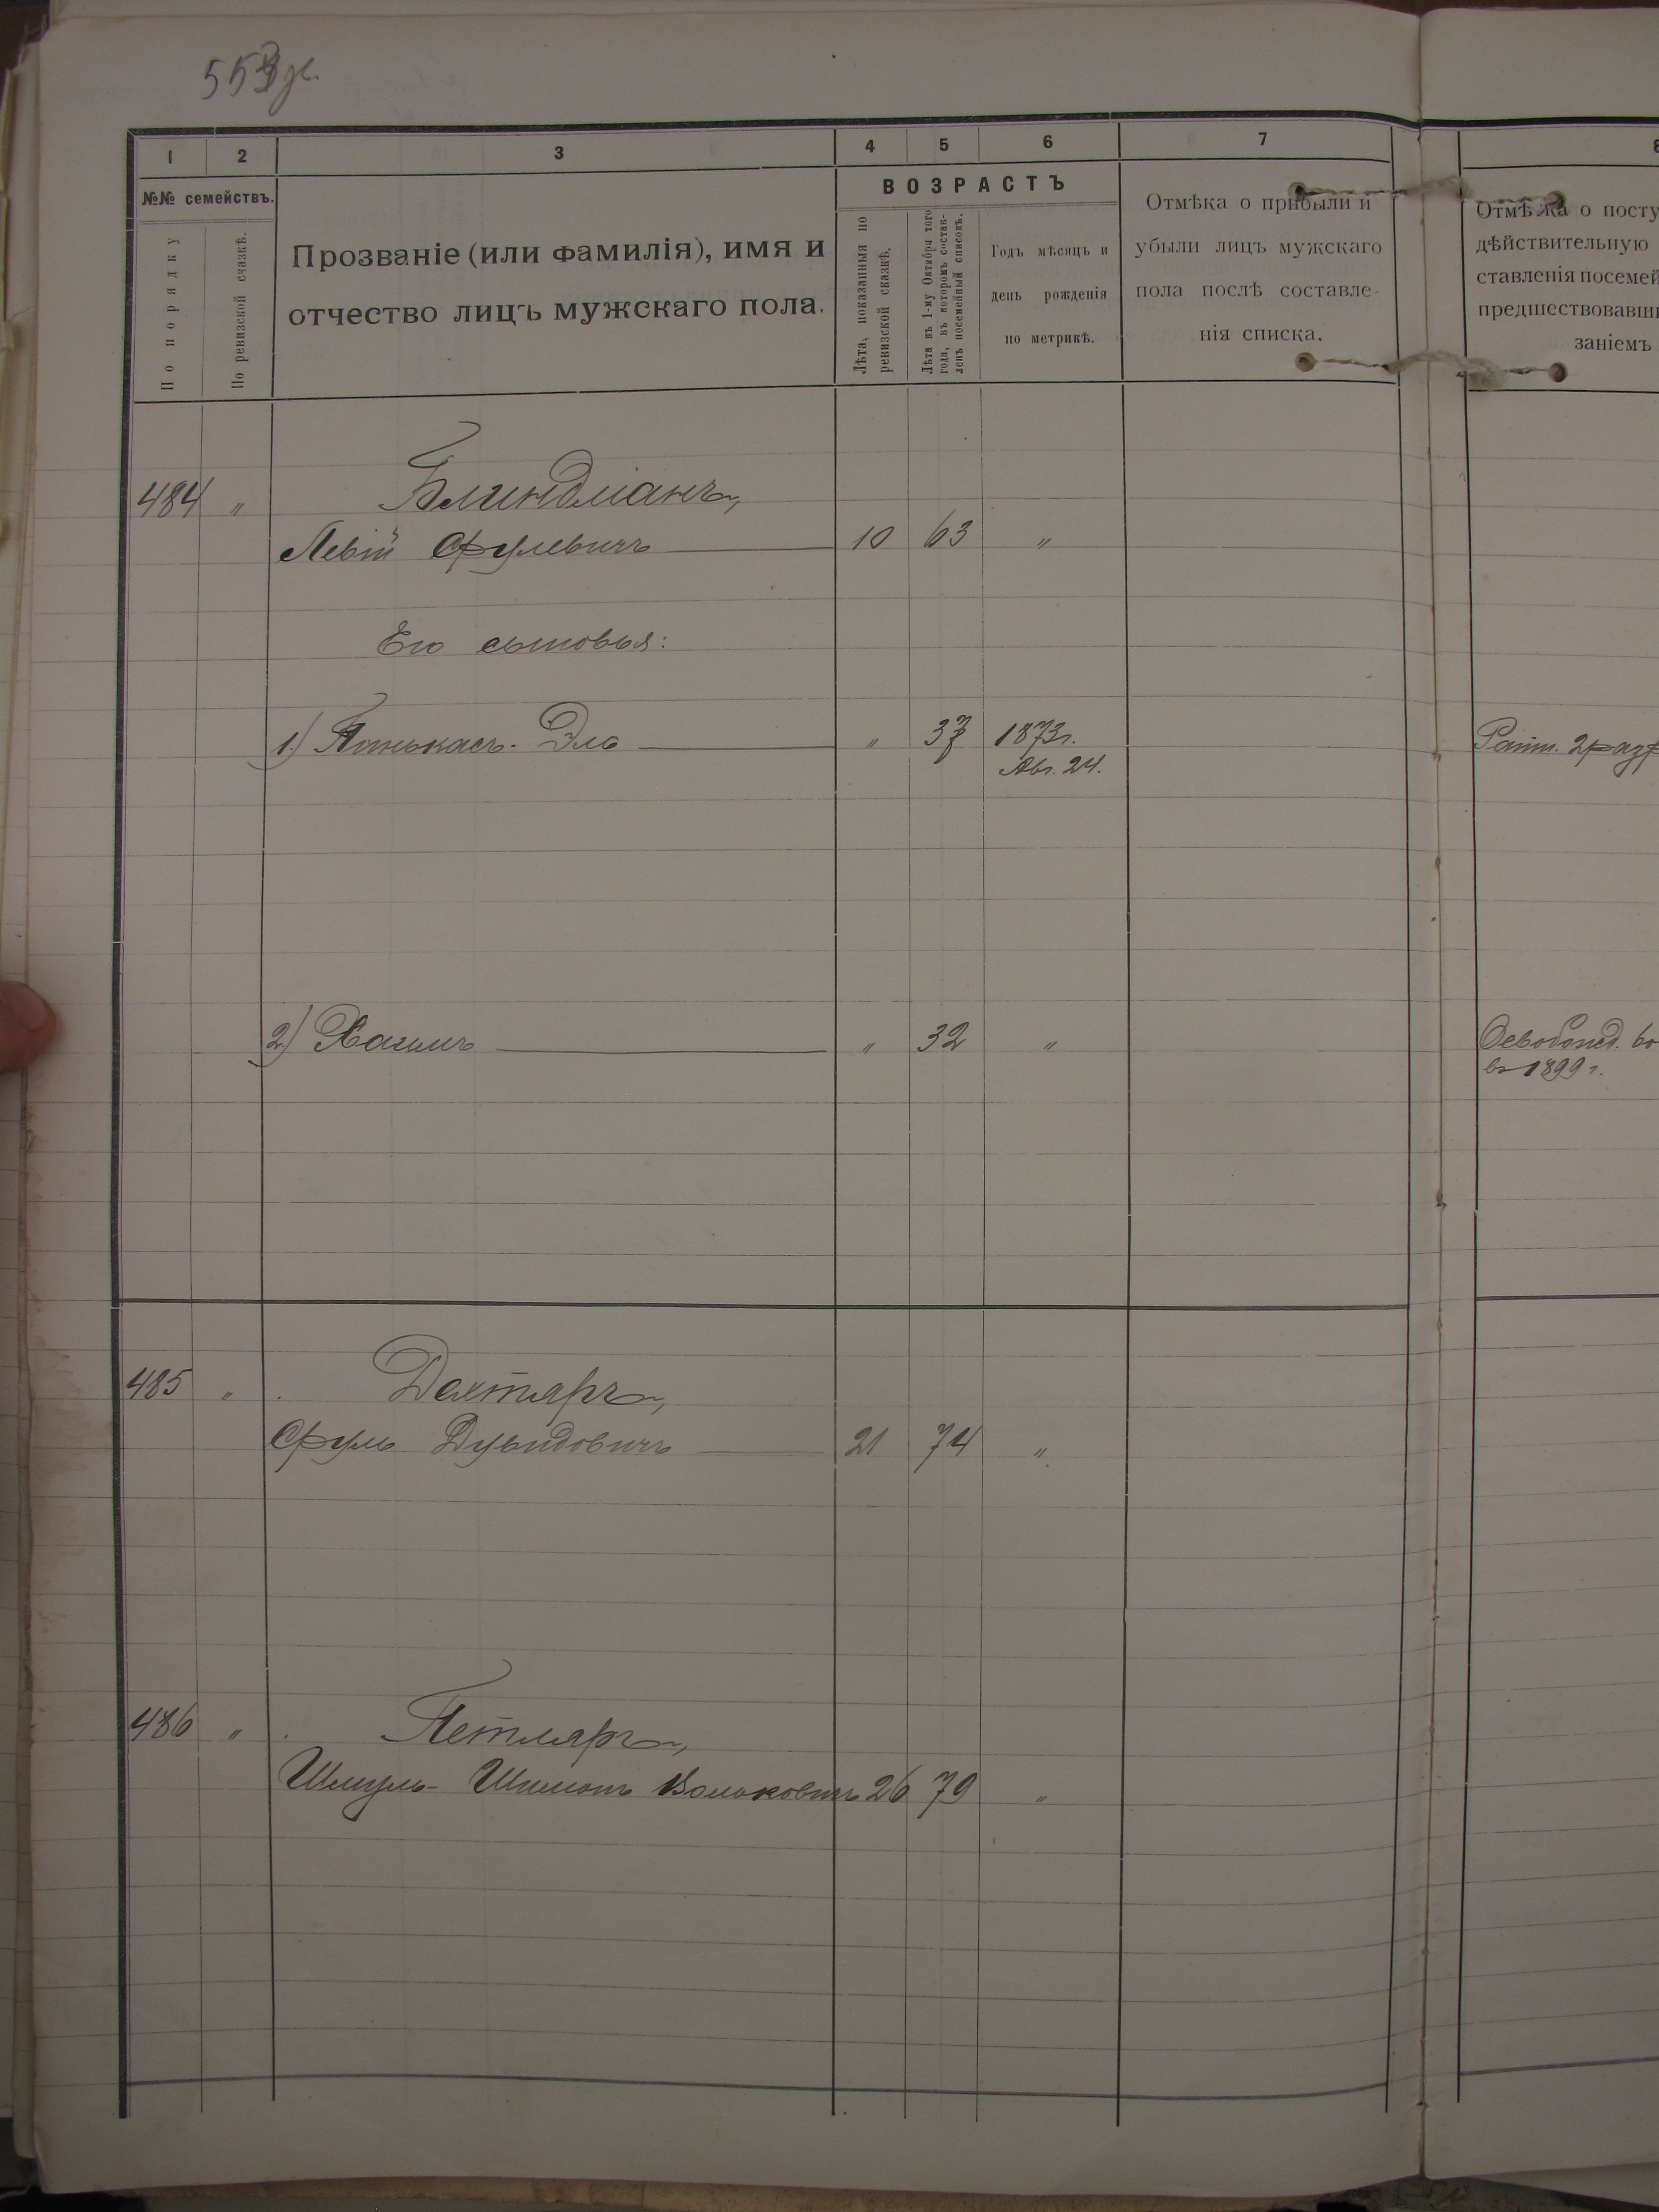 1 2 3 4 5 6 7 8
№№ семействъ.
По порядку
По ревизской сказкѣ.
Прозваніе (или фамилія), имя и
отчество лицъ мужскаго пола.
ВОЗРАСТЪ
Лѣта, показанныя по
ревизской сказкѣ.
Лѣта къ 1-му Октября того
года, въ которомъ состав-
ленъ посемейный списокъ.
Годъ мѣсяцъ и
день рожденія
по метрикѣ.
Отмѣка о прибыли и
убыли лицъ мужскаго
пола послѣ составле-
нія списка.
Отмѣтка о посту
дѣйствительную
ставленія посемей
предшествовавши
заніемъ
484 " Блиндманъ,
Левій Срулевичъ 10 63 "
Его сыновья:
1.) Пинькасъ-Эль " 37 1873г.
Авг. 24.
2.) Хаимъ " 32 "
Освобожд. во
въ 1899 г.
485 " Дехтяръ,
Сруль Дувидовичъ 21 74 "
486 " Петляръ,
Шмуль-Шимонъ Волковичъ 26 79 "